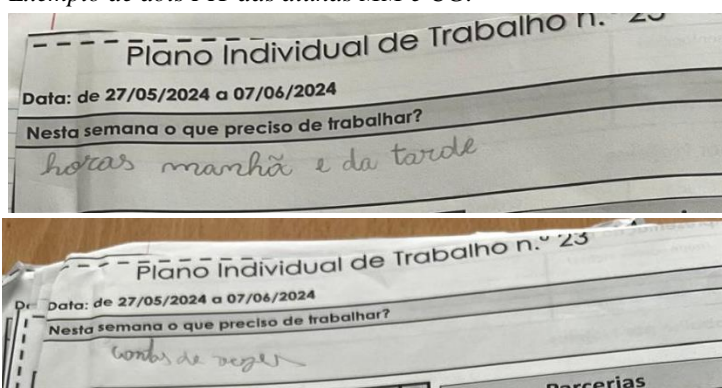 Exemplo de dois PIT das alunas MM e CG:
Plano Individual de Trabalho n.º 23
Data: de 27/05/2024 a 07/06/2024
Nesta semana o que preciso de trabalhar?
horas manhã e da tarde
Plano Individual de Trabalho n.º 23
Data: de 27/05/2024 a 07/06/2024
Nesta semana o que preciso de trabalhar?
contas de vezes
Parcerias